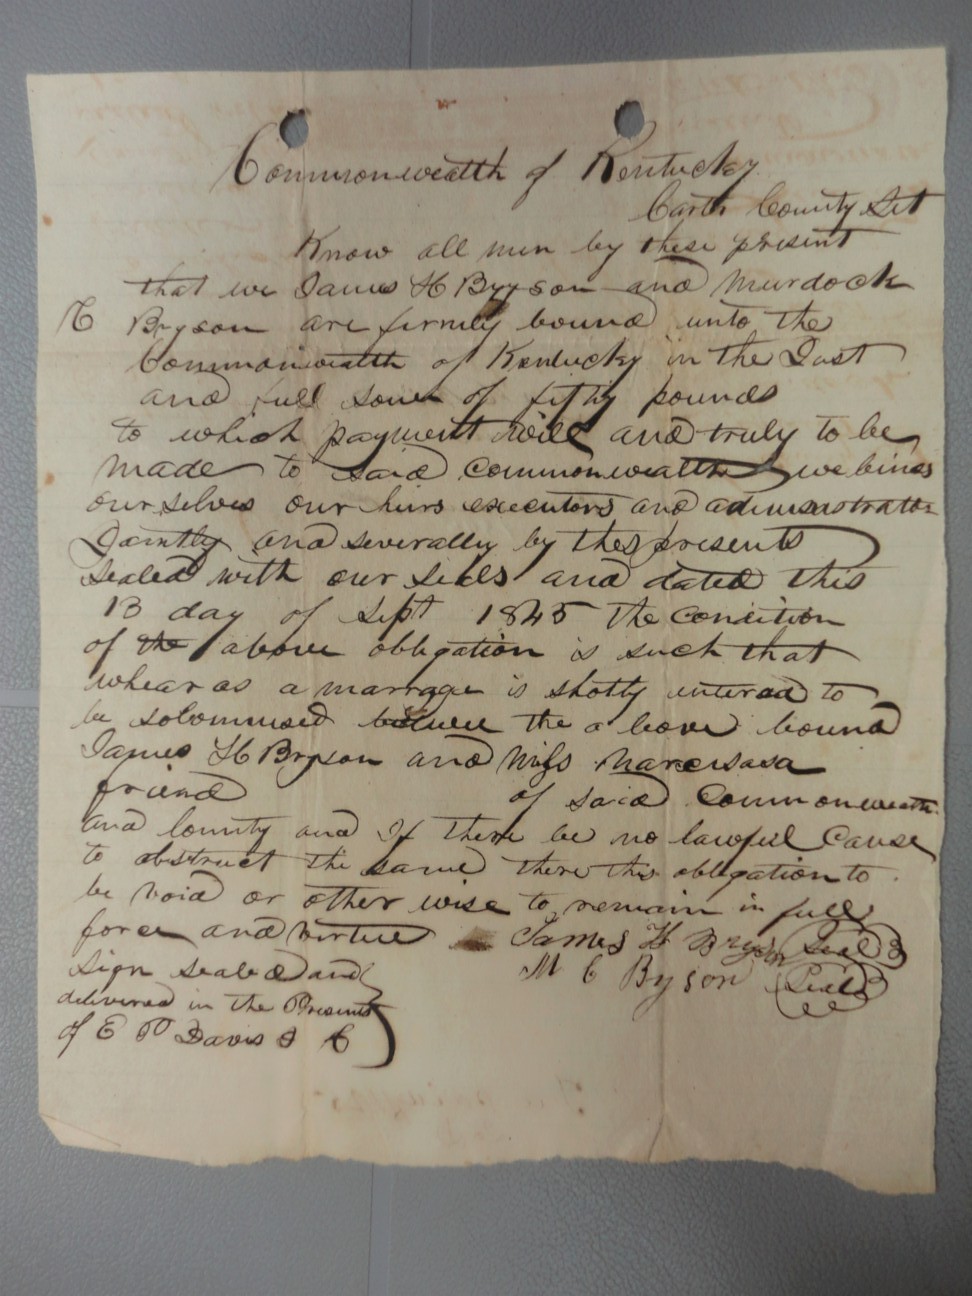 Commonwealth of Kentucky
Carter County Sct
Know all men by these present
that we James H Bryson and Murdock
C Bryson are firmly bound unto the
Commonwealth of Kentucky in the Just
and full som of fifty pounds
to which payment will and truly to be
made to said Commonwealth we binds
ourselves our hiers executors and administrators
Jointly and severally by thes presents
sealed with our seals and dated this
13 day of Sept 1845 the condition
of the above obligation is such that
whearas a marrage is shotly intenad to
be solommised between the a bove bound
James H Bryson and Miss Narcissa
friend of said Commonwealth
and County and If there be no lawful Cause
to obstruct the same then this obligation to
be void or other wise to remain in full
force and virtue James H Bryson Seal
Sign sealed and M C Byson Seal
delivered in the Presents
of E P Davis D C